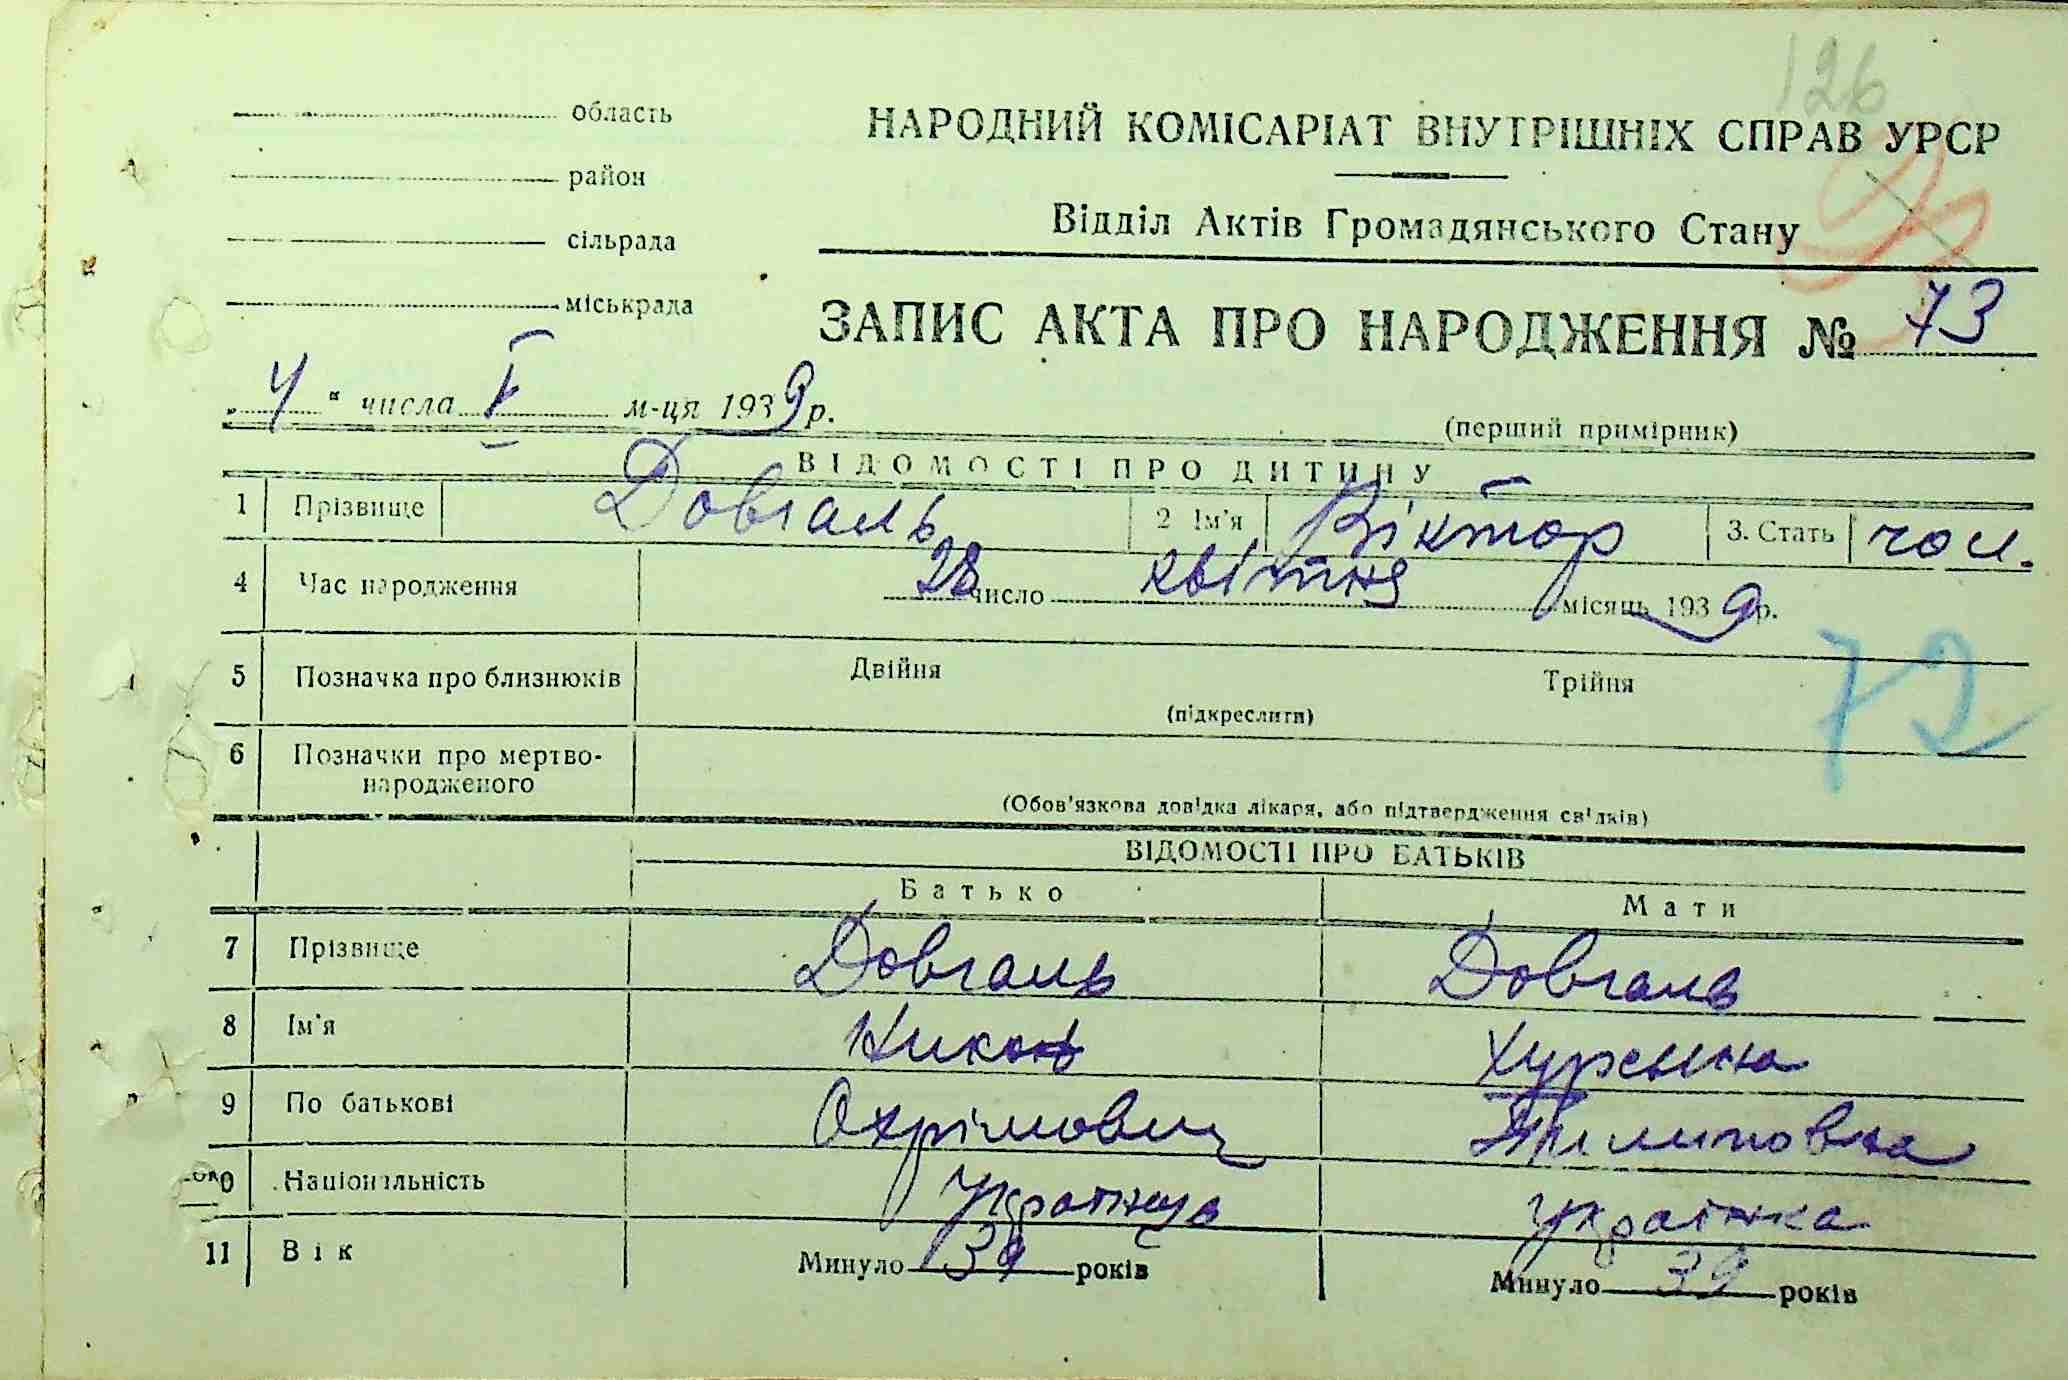 126
область
НАРОДНИЙ КОМІСАРІАТ ВНУТРІШНІХ СПРАВ УРСР
район
Відділ Актів Громадянського Стану
сільрада
міськрада
ЗАПИС АКТА ПРО НАРОДЖЕННЯ № 73
„4“ числа V м-ця 1939 р.
(перший примірник)
ВІДОМОСТІ ПРО ДИТИНУ
1 Прізвище Довгаль 2 Ім'я Віктор 3. Стать чол.
4 Час народження 28 число квітня місяць 1939 р.
72
5 Позначка про близнюків Двійня Трійня
(підкреслити)
6 Позначки про мертво-
народженого
(Обов'язкова довідка лікаря, або підтвердження свідків)
ВІДОМОСТІ ПРО БАТЬКІВ
Батько Мати
7 Прізвище Довгаль Довгаль
8 Ім'я Никон
9 По батькові Охрімович
0 Національність Українець Українка
11 Вік Минуло 39 років Минуло 39 років